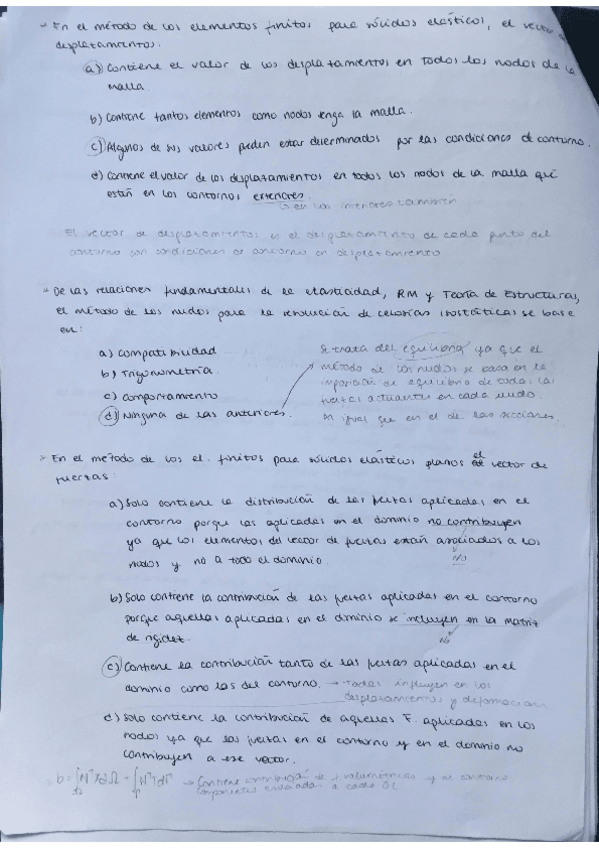 - En el método de los elementos finitos para sólidos elásticos, el vector
desplazamientos:
a) Contiene el valor de los desplazamientos en todos los nodos de la
malla.
b) Contiene tantos elementos como nodos tenga la malla.
c) Algunos de sus valores pueden estar determinados por las condiciones de contorno.
d) Contiene el valor de los desplazamientos en todos los nodos de la malla que
están en los contornos exteriores.
en los interiores también
El vector de desplazamientos es el desplazamiento de cada punto del
contorno son condiciones de contorno en desplazamiento
- De las relaciones fundamentales de la elasticidad, RM y Teoría de Estructuras,
el método de los nudos para la resolución de celosías isostáticas se basa
en:
a) Compatibilidad
b) Trigonometría.
c) Comportamiento
d) Ninguna de las anteriores.
Se trata del equilibrio ya que el
método de los nudos se basa en la
imposición de equilibrio de todas las
fuerzas actuantes en cada nudo.
Al igual que en el de las secciones.
- En el método de los el. finitos para sólidos elásticos planos el vector de
fuerzas:
a) Solo contiene la distribución de las fuerzas aplicadas en el
contorno porque las aplicadas en el dominio no contribuyen
ya que los elementos del vector de fuerzas están asociados a los
nodos y no a todo el dominio.
No
b) Solo contiene la contribución de las fuerzas aplicadas en el contorno
porque aquellas aplicadas en el dominio se incluyen en la matriz
de rigidez.
No
c) Contiene la contribución tanto de las fuerzas aplicadas en el
dominio como las del contorno. → Todas influyen en los
desplazamientos y deformación
d) Solo contiene la contribución de aquellas F. aplicadas en los
nodos ya que las fuerzas en el contorno y en el dominio no
contribuyen a ese vector.
→ Contiene contribución de f. volumétricas y de contorno
componentes a cada GL